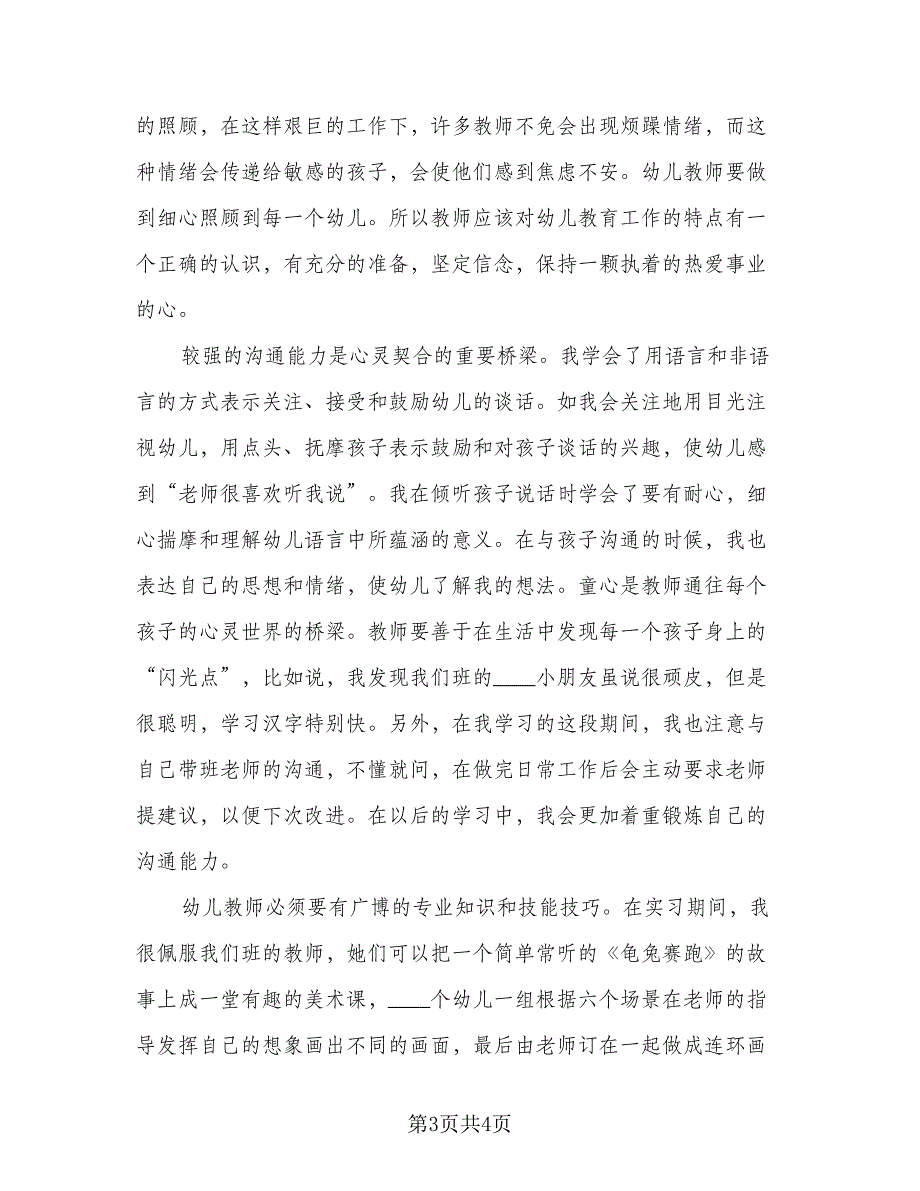 的照顾，在这样艰巨的工作下，许多教师不免会出现烦躁情绪，而这
种情绪会传递给敏感的孩子，会使他们感到焦虑不安。幼儿教师要做
到细心照顾到每一个幼儿。所以教师应该对幼儿教育工作的特点有一
个正确的认识，有充分的准备，坚定信念，保持一颗执着的热爱事业
的心。
较强的沟通能力是心灵契合的重要桥梁。我学会了用语言和非语
言的方式表示关注、接受和鼓励幼儿的谈话。如我会关注地用目光注
视幼儿，用点头、抚摩孩子表示鼓励和对孩子谈话的兴趣，使幼儿感
到“老师很喜欢听我说”。我在倾听孩子说话时学会了要有耐心，细
心揣摩和理解幼儿语言中所蕴涵的意义。在与孩子沟通的时候，我也
表达自己的思想和情绪，使幼儿了解我的想法。童心是教师通往每个
孩子的心灵世界的桥梁。教师要善于在生活中发现每一个孩子身上的
“闪光点”，比如说，我发现我们班的____小朋友虽说很顽皮，但是
很聪明，学习汉字特别快。另外，在我学习的这段期间，我也注意与
自己带班老师的沟通，不懂就问，在做完日常工作后会主动要求老师
提建议，以便下次改进。在以后的学习中，我会更加着重锻炼自己的
沟通能力。
幼儿教师必须要有广博的专业知识和技能技巧。在实习期间，我
很佩服我们班的教师，她们可以把一个简单常听的《龟兔赛跑》的故
事上成一堂有趣的美术课，____个幼儿一组根据六个场景在老师的指
导发挥自己的想象画出不同的画面，最后由老师订在一起做成连环画
第3页共4页